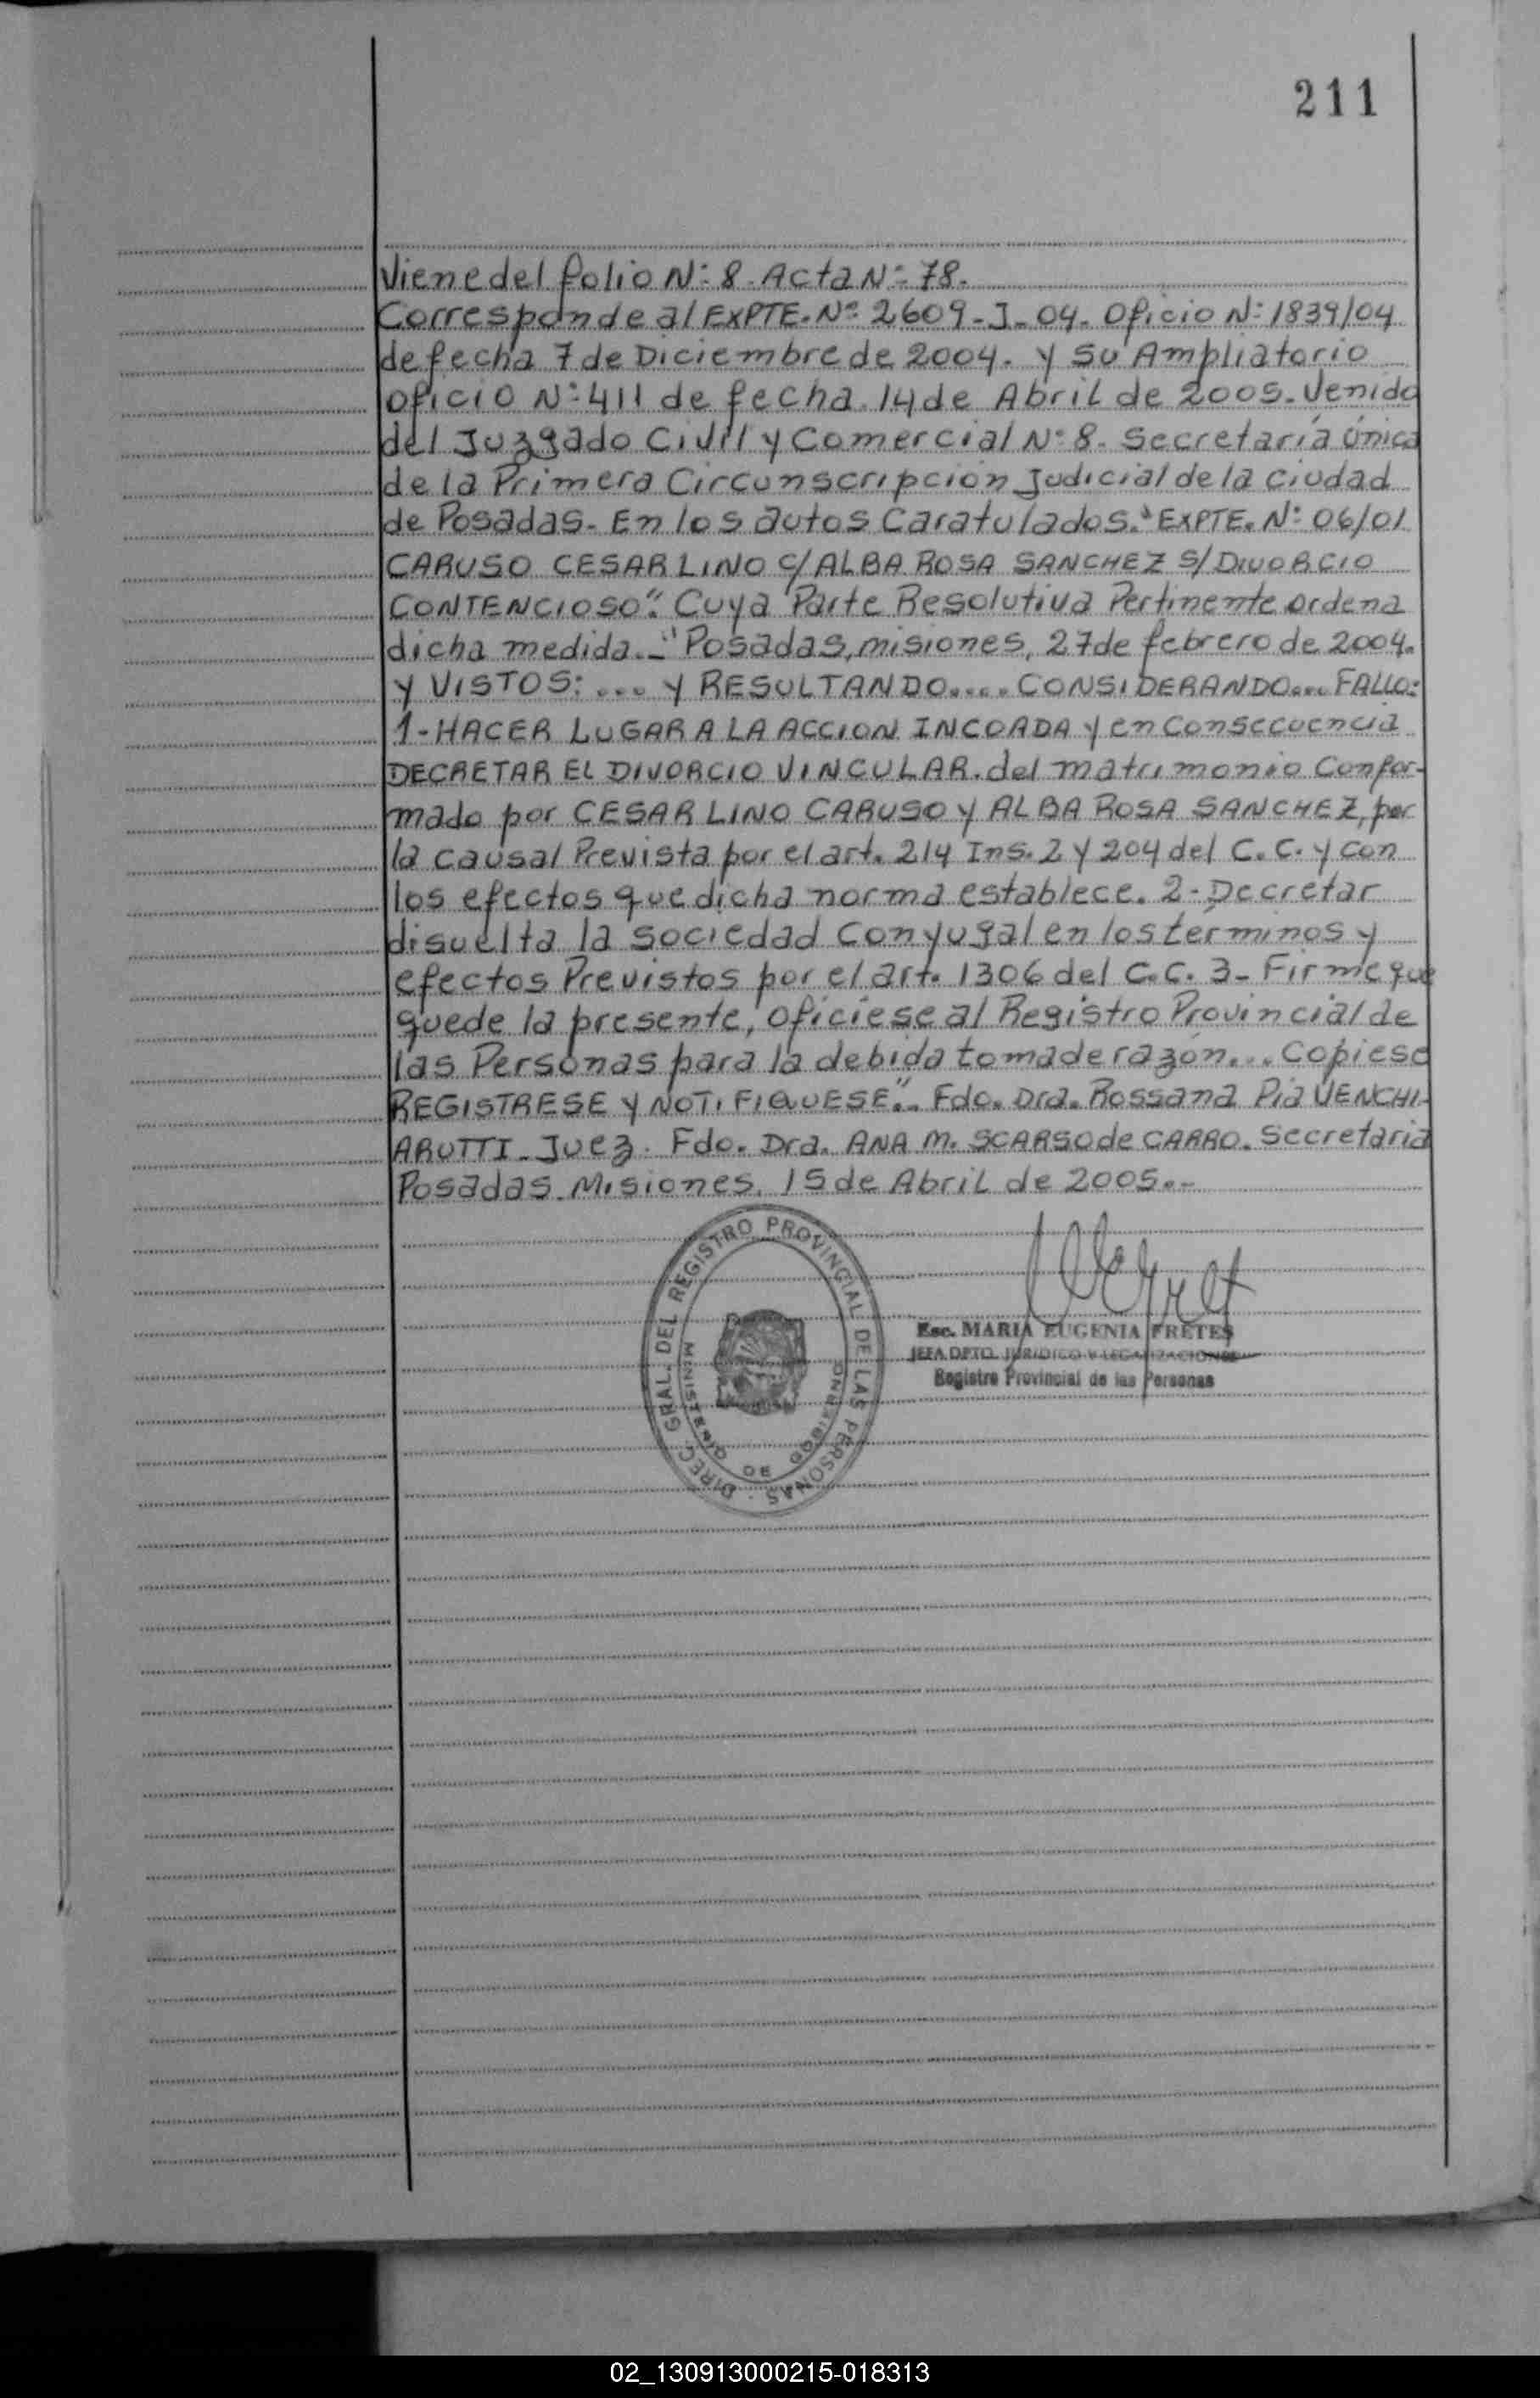 211
Viene del folio N: 8. Acta N: 78.
Corresponde al EXPTE. Nº 2609-J-04. Oficio N: 1839/04
de fecha 7 de Diciembre de 2004. y su Ampliatorio
oficio N: 411 de fecha 14 de Abril de 2005. Venido
del Juzgado Civil y Comercial Nº 8. Secretaría Única
de la Primera Circunscripción Judicial de la ciudad
de Posadas. En los autos Caratulados. "EXPTE. N: 06/01
CARUSO CESAR LINO C/ ALBA ROSA SANCHEZ S/ DIVORCIO
CONTENCIOSO". Cuya Parte Resolutiva Pertinente ordena
dicha medida.- "Posadas, misiones, 27 de febrero de 2004.
y VISTOS: ... y RESULTANDO.... CONSIDERANDO... FALLO:
1- HACER LUGAR A LA ACCION INCOADA y en Consecuencia
DECRETAR EL DIVORCIO VINCULAR. del matrimonio Confor-
mado por CESAR LINO CARUSO y ALBA ROSA SANCHEZ, por
la causal Prevista por el art. 214 Ins. 2 y 204 del C.C. y con
los efectos que dicha norma establece. 2- Decretar
disuelta la sociedad conyugal en los términos y
efectos Previstos por el art. 1306 del C.C. 3- Firme que
quede la presente, ofíciese al Registro Provincial de
las Personas para la debida toma de razón... Copiese
REGISTRESE y NOTIFIQUESE".- Fdo. Dra. Rossana Pia VENCHI-
ARUTTI. Juez. Fdo. Dra. ANA M. SCARSO de CARRO. Secretaria
Posadas. Misiones. 15 de Abril de 2005.-
DIREC. GRAL. DEL REGISTRO PROVINCIAL DE LAS PERSONAS
MINISTERIO DE GOBIERNO
Esc. MARIA EUGENIA FRETES
JEFA DPTO. JURIDICO Y LEGALIZACIONES
Registro Provincial de las Personas
02_130913000215-018313